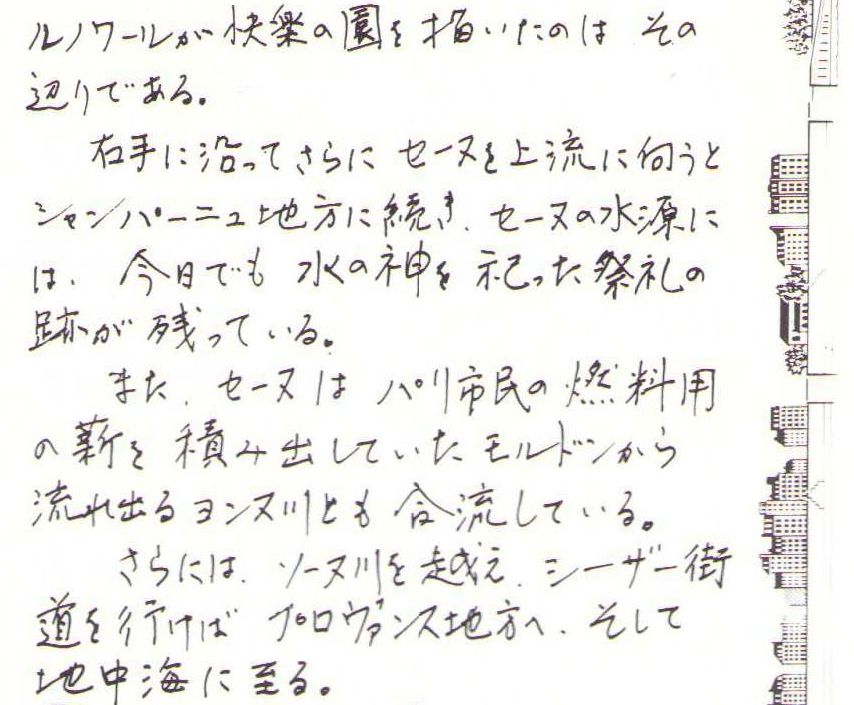 ルノワールが快楽の園を描いたのは その
辺りである。
右手に沿ってさらに セーヌを上流に向うと
シャンパーニュ地方に続き、セーヌの水源に
は、今日でも 水の神を 祀った祭礼の
跡が 残っている。
また、セーヌは パリ市民の 燃料用
の薪を 積み出していた モルドンから
流れ出るヨンヌ川とも 合流している。
さらには、ソーヌ川を越え、シーザー街
道を行けば プロヴァンス地方へ、そして
地中海に至る。